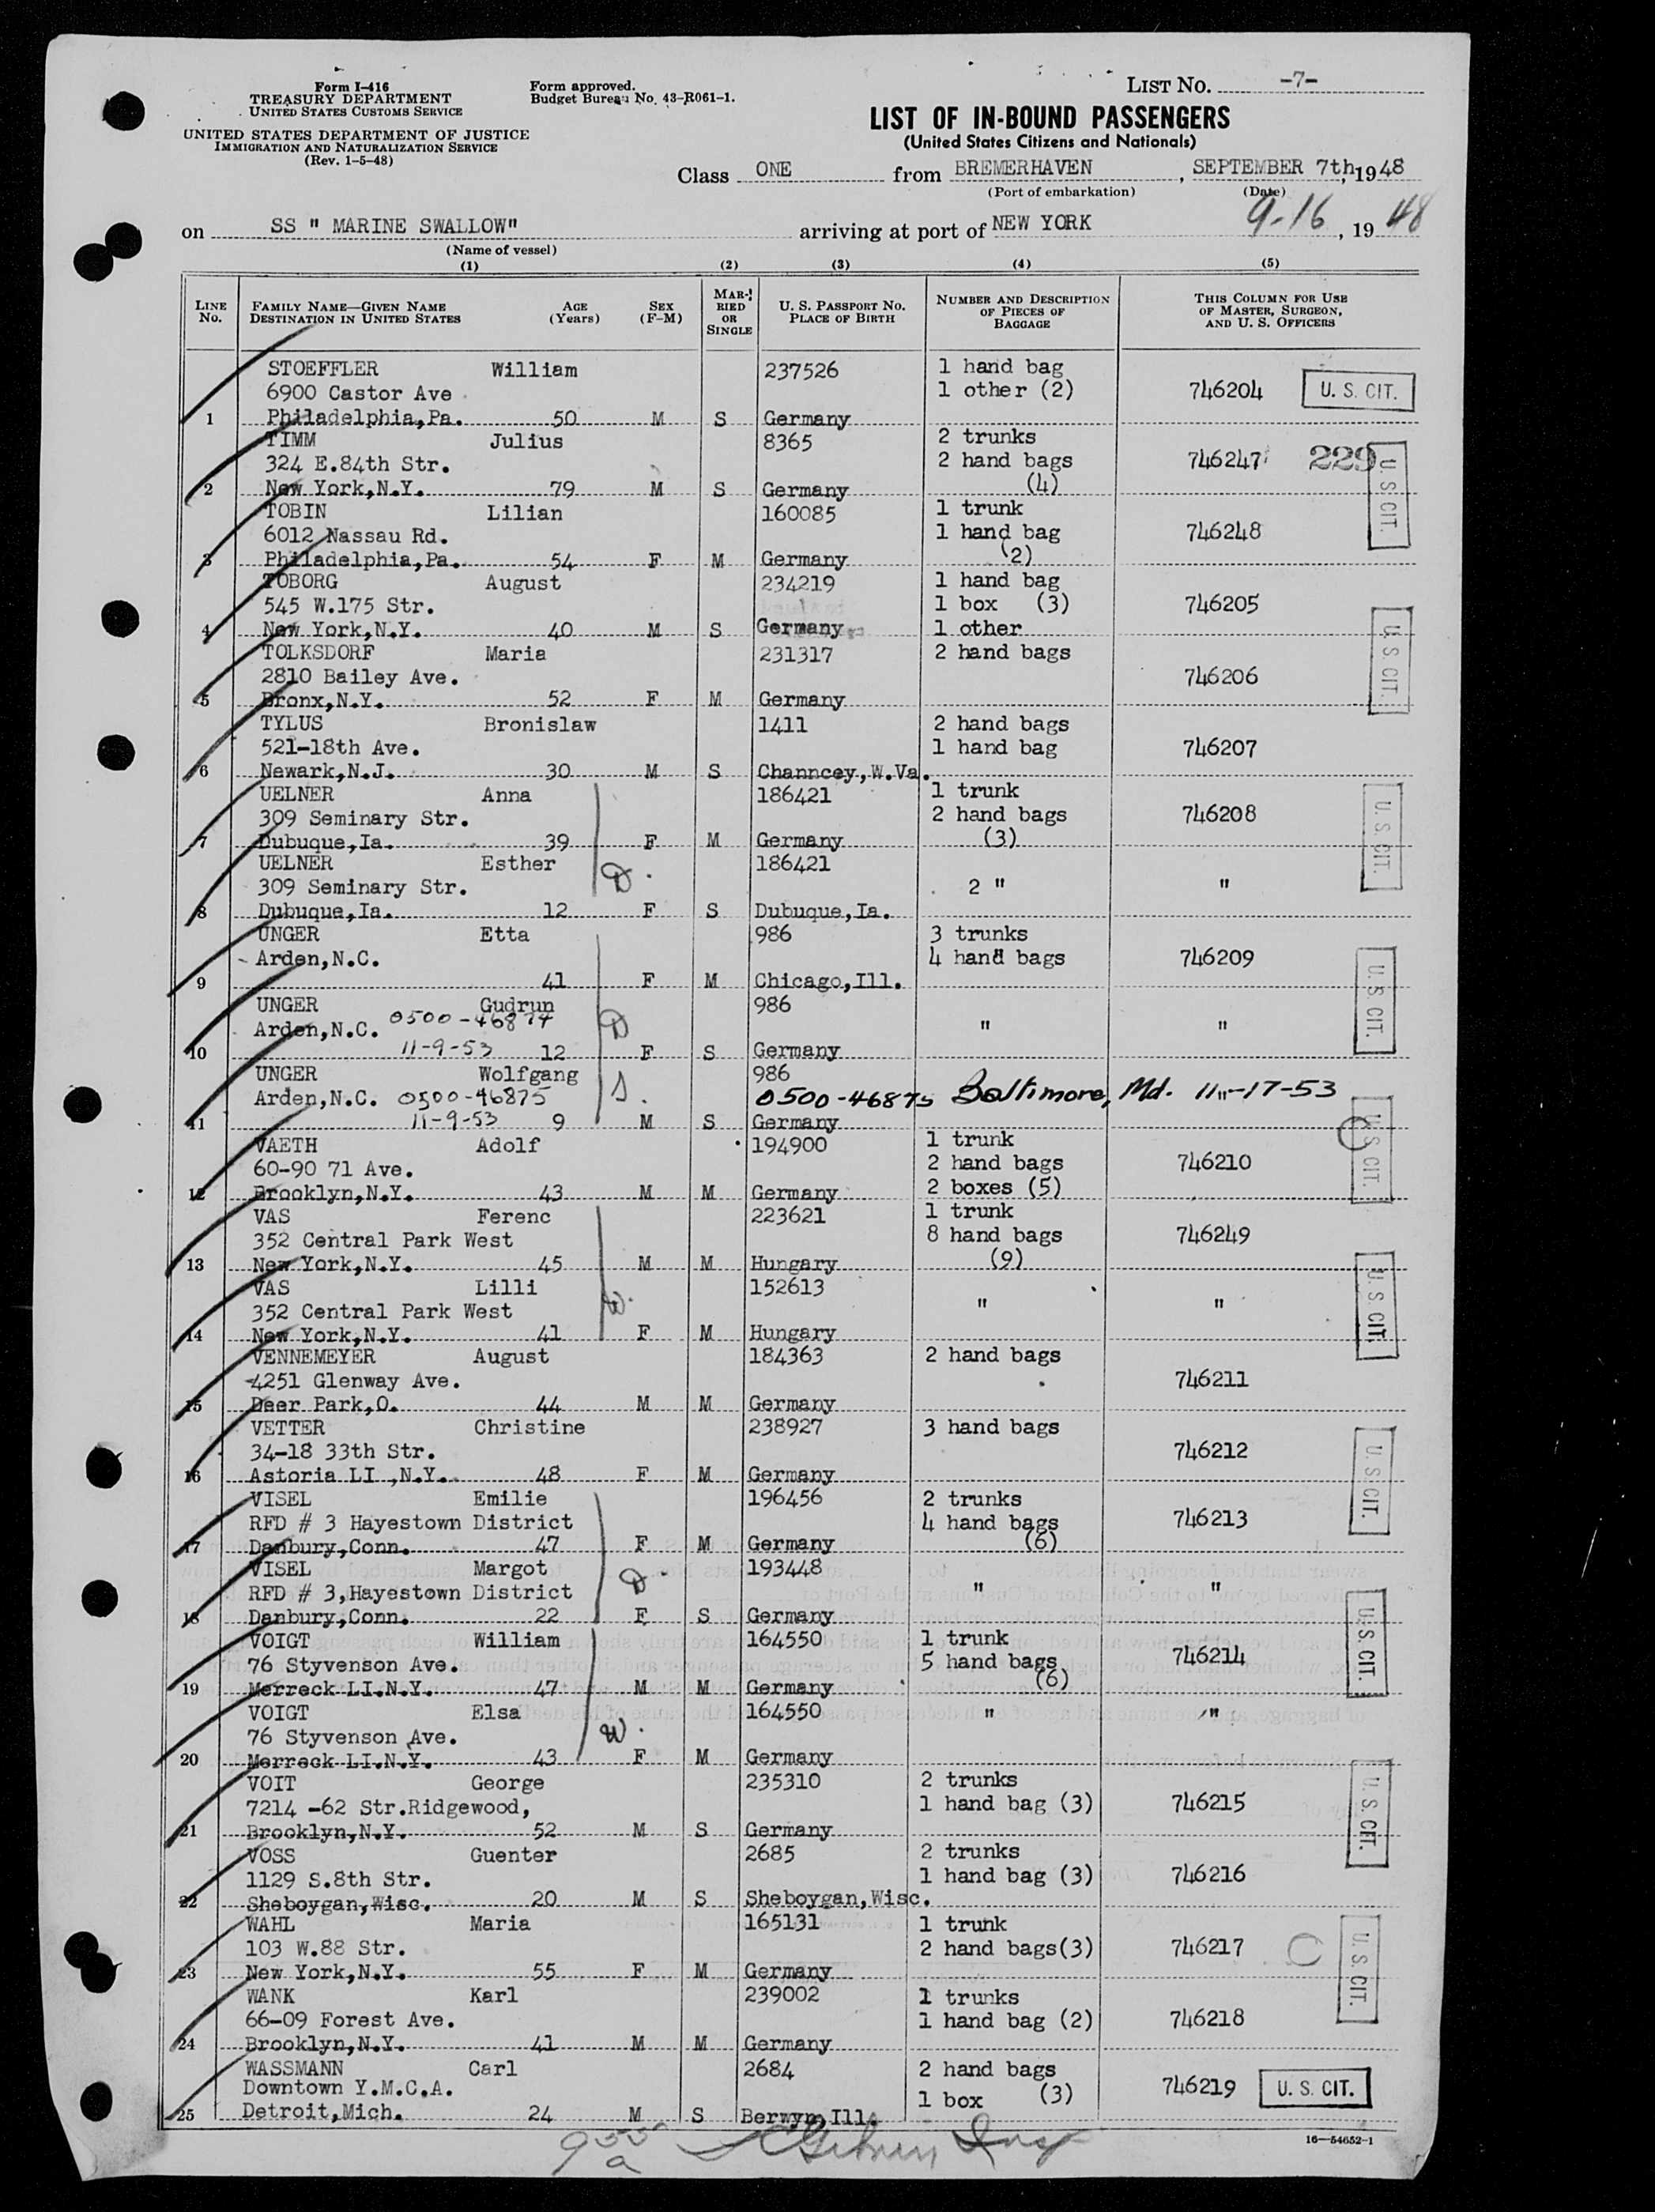 Form I-416
TREASURY DEPARTMENT
UNITED STATES CUSTOMS SERVICE
UNITED STATES DEPARTMENT OF JUSTICE
IMMIGRATION AND NATURALIZATION SERVICE
(Rev. 1-5-48)
Form approved.
Budget Bureau No. 43-R061-1.
LIST No. -7-
LIST OF IN-BOUND PASSENGERS
(United States Citizens and Nationals)
Class ONE from BREMERHAVEN, SEPTEMBER 7th, 1948
(Port of embarkation) (Date)
on SS " MARINE SWALLOW" arriving at port of NEW YORK 9-16, 1948
(Name of vessel)
(1) (2) (3) (4) (5)
LINE No. FAMILY NAME—GIVEN NAME DESTINATION IN UNITED STATES AGE (Years) SEX (F-M) MARRIED OR SINGLE U. S. PASSPORT No. PLACE OF BIRTH NUMBER AND DESCRIPTION OF PIECES OF BAGGAGE THIS COLUMN FOR USE OF MASTER, SURGEON, AND U. S. OFFICERS
STOEFFLER William 237526 1 hand bag
6900 Castor Ave 1 other (2) 746204 U. S. CIT.
1 Philadelphia,Pa. 50 M S Germany
TIMM Julius 8365 2 trunks
324 E.84th Str. 2 hand bags 746247 229 U. S. CIT.
2 New York,N.Y. 79 M S Germany (4)
TOBIN Lilian 160085 1 trunk
6012 Nassau Rd. 1 hand bag 746248
3 Philadelphia,Pa. 54 F M Germany (2)
TOBORG August 234219 1 hand bag
545 W.175 Str. 1 box (3) 746205
4 New York,N.Y. 40 M S Germany 1 other
TOLKSDORF Maria 231317 2 hand bags U. S. CIT.
2810 Bailey Ave. 746206
5 Bronx,N.Y. 52 F M Germany
TYLUS Bronislaw 1411 2 hand bags
521-18th Ave. 1 hand bag 746207
6 Newark,N.J. 30 M S Channcey,W.Va.
UELNER Anna 186421 1 trunk
309 Seminary Str. 2 hand bags 746208 U. S. CIT.
7 Dubuque,Ia. 39 F M Germany (3)
UELNER Esther 186421
309 Seminary Str. D. 2 " "
8 Dubuque,Ia. 12 F S Dubuque,Ia.
UNGER Etta 986 3 trunks
Arden,N.C. 4 hand bags 746209
9 41 F M Chicago,Ill. U. S. CIT.
UNGER Gudrun 986
Arden,N.C. 0500-46874 D " "
10 11-9-53 12 F S Germany
UNGER Wolfgang 986
Arden,N.C. 0500-46875 0500-46875 Baltimore, Md. 11-17-53
11 11-9-53 9 M S Germany
VAETH Adolf 194900 1 trunk U. S. CIT.
60-90 71 Ave. 2 hand bags 746210
12 Brooklyn,N.Y. 43 M M Germany 2 boxes (5)
VAS Ferenc 223621 1 trunk
352 Central Park West 8 hand bags 746249
13 New York,N.Y. 45 M M Hungary (9)
VAS Lilli 152613
352 Central Park West W. " " U. S. CIT.
14 New York,N.Y. 41 F M Hungary
VENNEMEYER August 184363 2 hand bags
4251 Glenway Ave. 746211
15 Deer Park,O. 44 M M Germany
VETTER Christine 238927 3 hand bags
34-18 33th Str. 746212 U. S. CIT.
16 Astoria LI ,N.Y. 48 F M Germany
VISEL Emilie 196456 2 trunks
RFD # 3 Hayestown District 4 hand bags 746213
17 Danbury,Conn. 47 F M Germany (6)
VISEL Margot 193448
RFD # 3,Hayestown District D. " "
18 Danbury,Conn. 22 F S Germany
VOIGT William 164550 1 trunk U. S. CIT.
76 Styvenson Ave. 5 hand bags 746214
19 Merreck LI.N.Y. 47 M M Germany (6)
VOIGT Elsa 164550 " "
76 Styvenson Ave. W.
20 Merreck LI.N.Y. 43 F M Germany
VOIT George 235310 2 trunks
7214 -62 Str.Ridgewood, 1 hand bag (3) 746215 U. S. CIT.
21 Brooklyn,N.Y. 52 M S Germany
VOSS Guenter 2685 2 trunks
1129 S.8th Str. 1 hand bag (3) 746216
22 Sheboygan,Wisc. 20 M S Sheboygan,Wisc.
WAHL Maria 165131 1 trunk
103 W.88 Str. 2 hand bags(3) 746217 U. S. CIT.
23 New York,N.Y. 55 F M Germany
WANK Karl 239002 1 trunks
66-09 Forest Ave. 1 hand bag (2) 746218
24 Brooklyn,N.Y. 41 M M Germany
WASSMANN Carl 2684 2 hand bags
Downtown Y.M.C.A. 1 box (3) 746219 U. S. CIT.
25 Detroit,Mich. 24 M S Berwyn,Ill.
16—54652-1